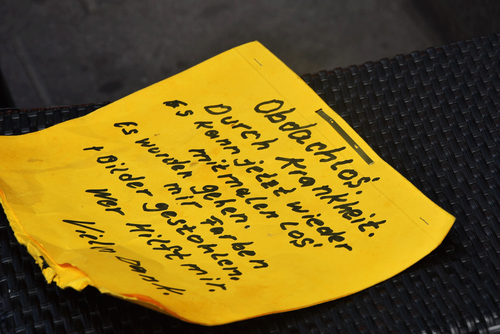 Obdachlos
Durch Krankheit.
Es kann jetzt wieder
mit malen Los
gehen.
Es wurden mir Farben
+ Bilder gestohlen.
Wer Hilft mir.
Vieln Dank.